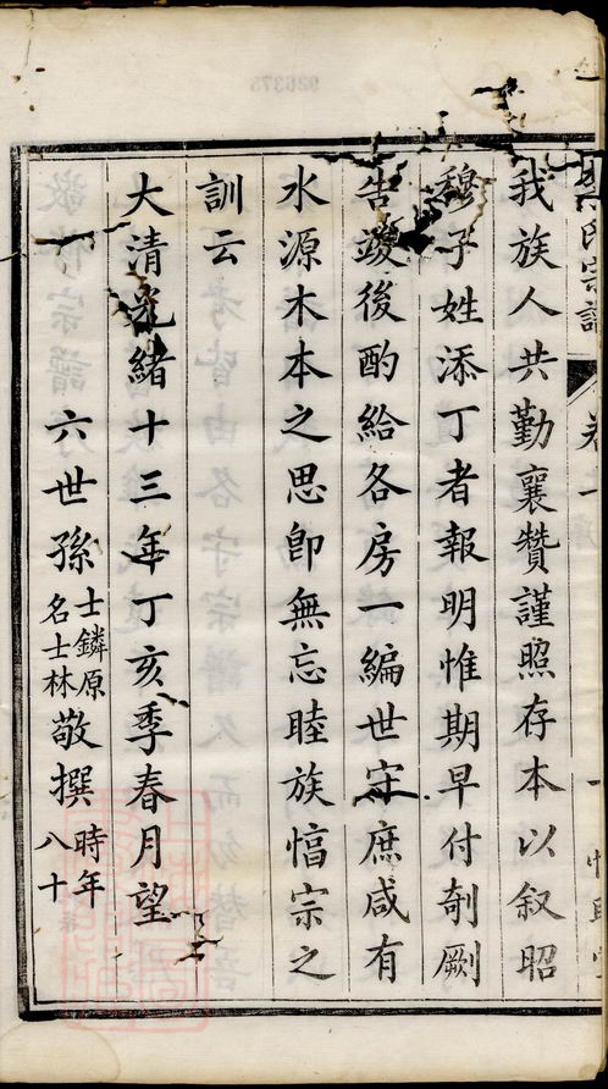 氏宗譜 卷一
我族人共勤襄贊謹照存本以叙昭
穆子姓添丁者報明惟期早付剞劂
告竣後酌給各房一編世守庶咸有
水源木本之思卽無忘睦族愊宗之
訓云
大清光緒十三年丁亥季春月望
六世孫士鏻原名士林敬撰時年八十